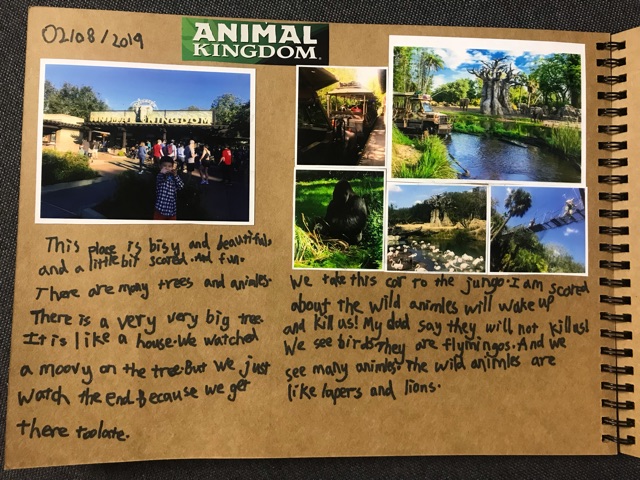 02/08/2019
ANIMAL
KINGDOM
ANIMAL KINGDOM
This place is bisy and beautiful,
and a little bit scored. And fun.
There are many trees and animles.
There is a very very big tree.
It is like a house. We watched
a moovy on the tree. But we just
watch the end. Because we get
there toolate.
We take this car to the jungo. I am scored
about the wild animles will wake up
and kill us! My dad say they will not kill us!
We see birds. They are flymingos. And we
see many animles. The wild animles are
like lapers and lions.